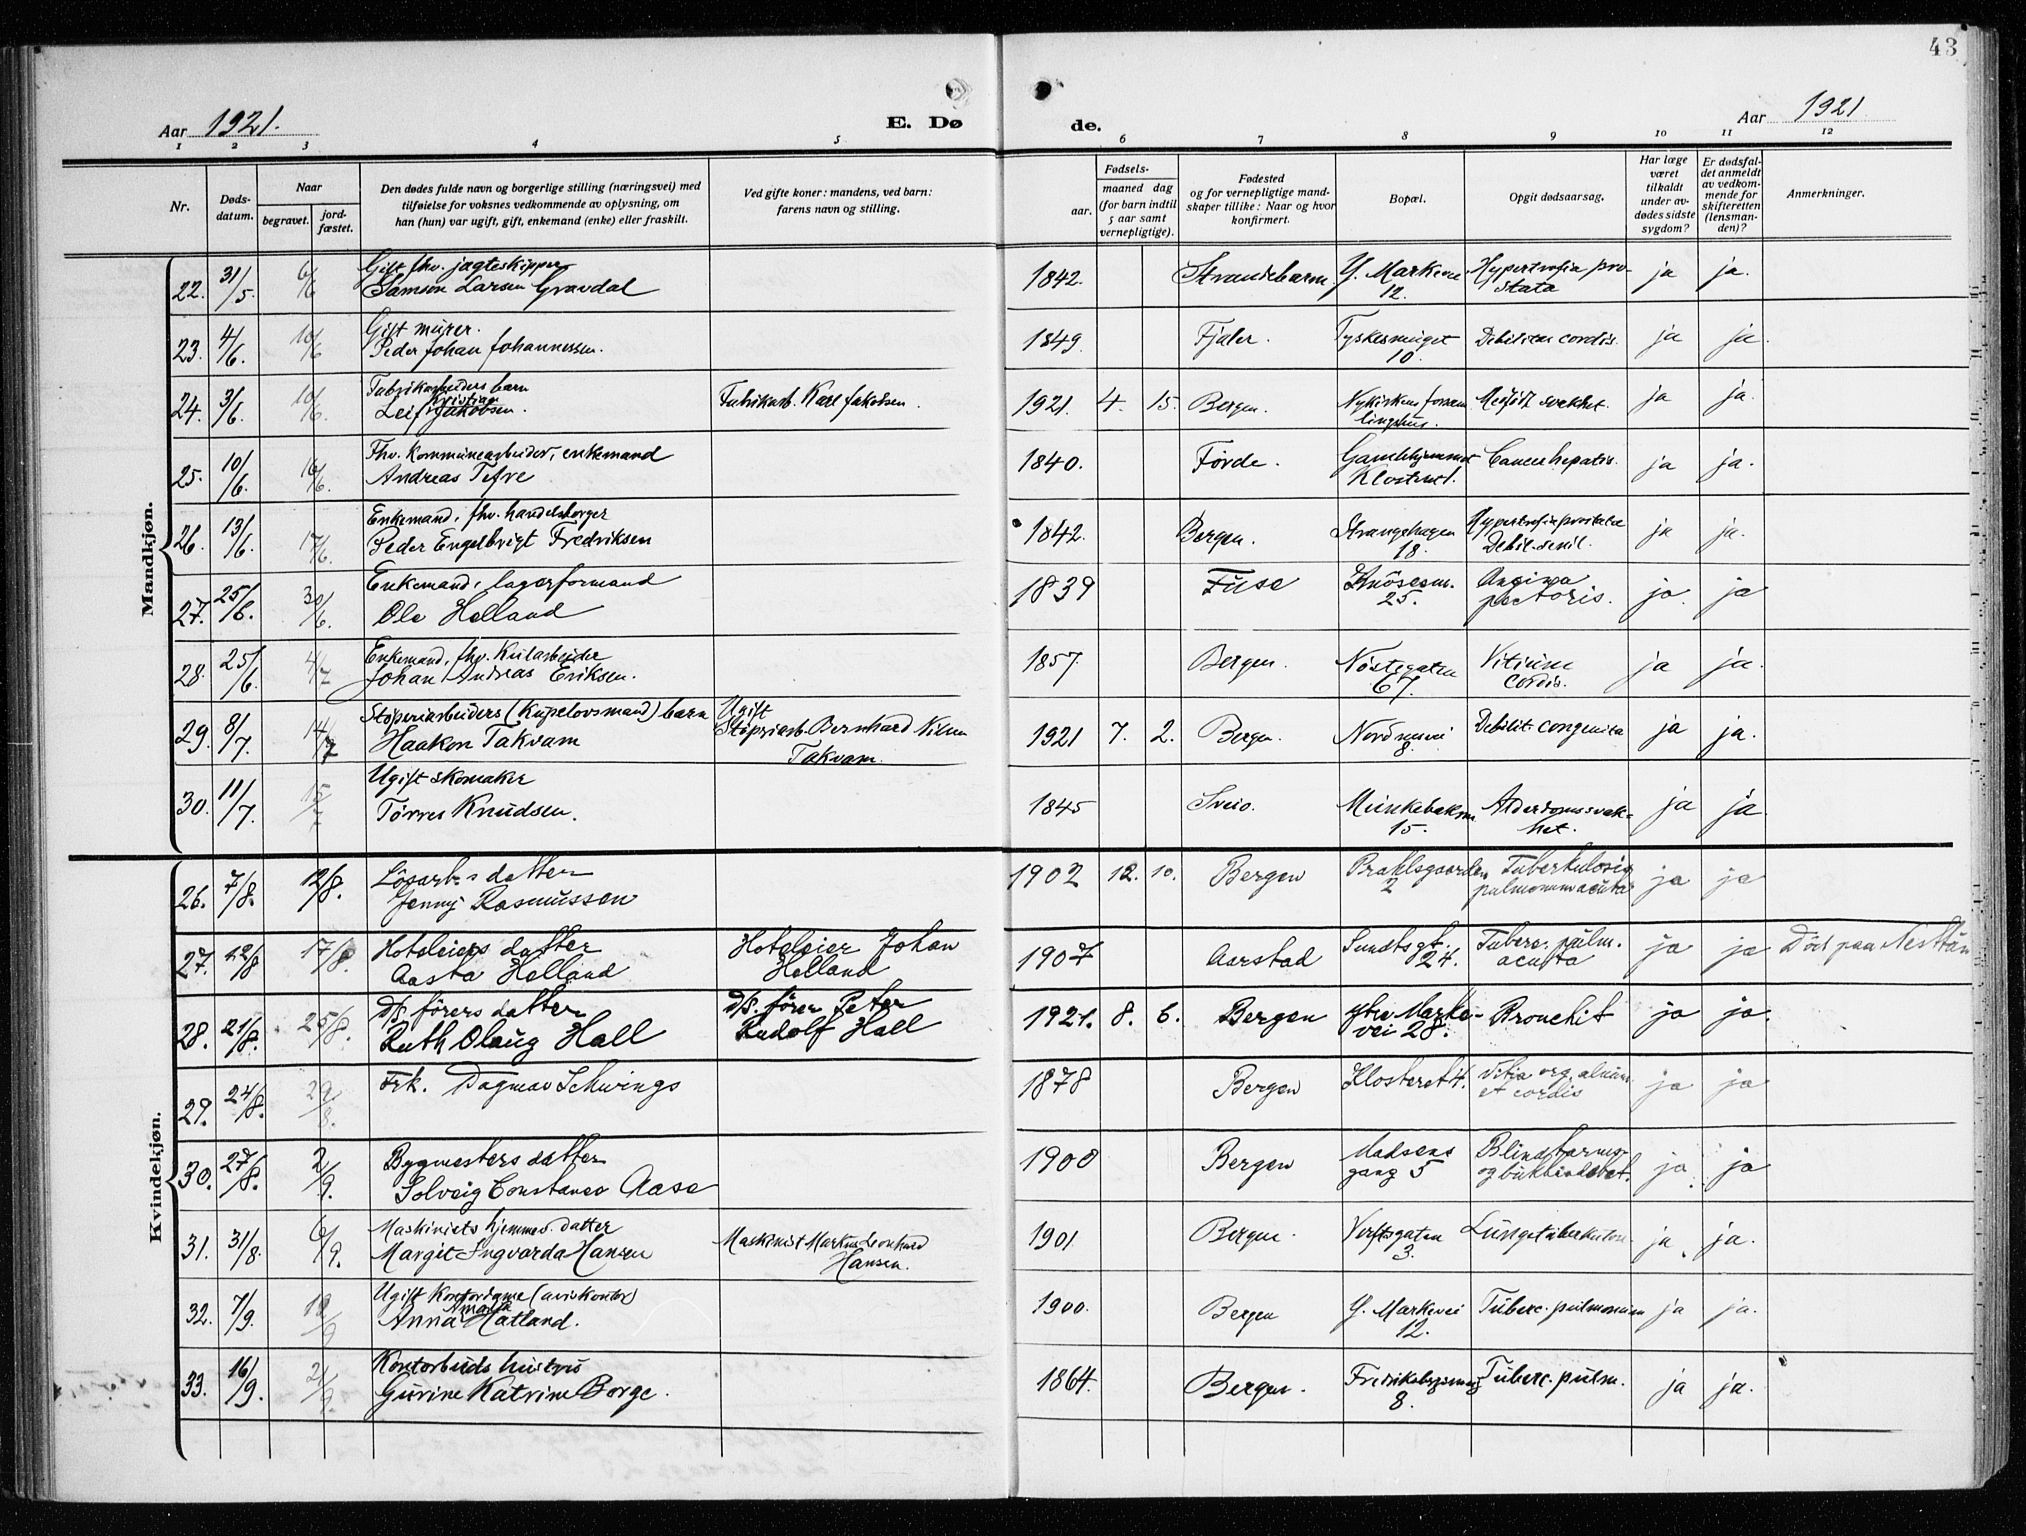 43
Aar 1921.
E. Dø
de.
Aar 1921
1 2 3 4 5 6 7 8 9 10 11 12
Nr.
Døds-
datum.
Naar
begravet.
jord-
fæstet.
Den dødes fulde navn og borgerlige stilling (næringsvei) med
tilføielse for voksnes vedkommende av oplysning, om
han (hun) var ugift, gift, enkemand (enke) eller fraskilt.
Ved gifte koner: mandens, ved barn:
farens navn og stilling.
Fødsels-
aar.
maaned dag
(for barn indtil
5 aar samt
vernepligtige).
Fødested
og for vernepligtige mand-
skaper tillike: Naar og hvor
konfirmert.
Bopæl.
Opgit dødsaarsag.
Har læge
været
tilkaldt
under av-
dødes sidste
sygdom?
Er dødsfal-
det anmeldt
av vedkom-
mende for
skifteretten
(lensman-
den)?
Anmerkninger.
Mandkjøn.
22. 31/5. 6/6 Gift fhv. jagteskipper
Samson Larsen Gravdal
1842. Strandebarm Y. Markevei
12. Hypertrofia pro-
stata ja ja.
23. 4/6. 10/6 Gift murer.
Peder Johan Johannessen.
1849. Fjaler. Tyskesmuget
10. Debilitas cordis. ja ja.
24. 3/6. 10/6 Fabrikarbeiders barn
Kristian
Leif Jakobsen. Fabrikarb. Karl Jakobsen.
1921. 4. 15. Bergen. Nykirkens forsam
lingshus. Medfødt svakhet. ja ja.
25. 10/6. 16/6. Fhv. kommunearbeider, enkemand
Andreas Tefre
1840. Førde. Gamlehjemmet
Klosteret. Cancer hepatis. ja ja.
26. 13/6. 17/6. Enkemand, fhv. handelsborger
Peder Engelbrigt Fredriksen
1842. Bergen. Strangehagen
18. Hypertrofia prostatae
Debil. senil. ja ja.
27. 25/6. 30/6. Enkemand, lagerformand
Ole Helland
1839 Fuse Knösesm.
25. Angina
pectoris. ja. ja
28. 25/6. 4/7 Enkemand, fhv. Kularbeider
Johan Andreas Eriksen.
1857. Bergen. Nöstegaten
67. Vitium
cordis. ja ja.
29. 8/7. 14/7 Støperiarbeiders (Kupelovsmand) barn
Haakon Takvam Ugift
Støpriarb. Bernhard Nilsen
Takvam.
1921 7. 2. Bergen. Nordnesvei
8. Debilit. congenita ja ja.
30. 11/7. 15/7 Ugift skomaker
Tørres Knudsen.
1845 Sveio. Munkebeksm
15. Alderdomssvak-
het. ja ja
Kvindekjøn.
26. 7/8. 12/8. Lösarb.s datter
Jenny Rasmussen
1902 12. 10. Bergen Brahlsgaarden
2 Tuberkulosis
pulmonum acuta ja ja
27. 12/8 17/8 Hoteleiers datter
Aasta Helland Hoteleier Johan
Helland
1907 Aarstad Sundtsgt.
24. Tuberc. pulm.
acuta ja ja Död paa Nesttun
28. 21/8. 25/8. D/S. förers datter
Ruth Olaug Hall D/S. förer Peter
Rudolf Hall
1921. 8. 6. Bergen ytre Marke-
vei 28. Bronchit ja ja.
29. 24/8. 29/8. Frk. Dagmar Schwings
1878 Bergen Klosteret 4. Vitia org.
et cordis ja ja
30. 27/8. 2/9. Bygmesters datter
Solveig Constance Aase
1900 Bergen Madsens
gang 5 Blindtarms-
og bukhindebet. ja ja
31. 31/8. 6/9. Maskinists hjemmev. datter
Margit Ingvarda Hansen Maskinist Markus Leonhard
Hansen.
1901. Bergen. Verftsgaten
3. Lungetuberkulose ja. ja.
32. 7/9. 13/9 Ugift Kontordame (aviskontor)
Amalia
Anna Hatland.
1900. Bergen Y. Markevei
12. Tuberc. pulmonum ja ja.
33. 16/9. 21/9. Kontorbuds hustru
Gurine Katrine Borge.
1864. Bergen. Fredriksbergsmug
8. Tuberc. pulm. ja ja.